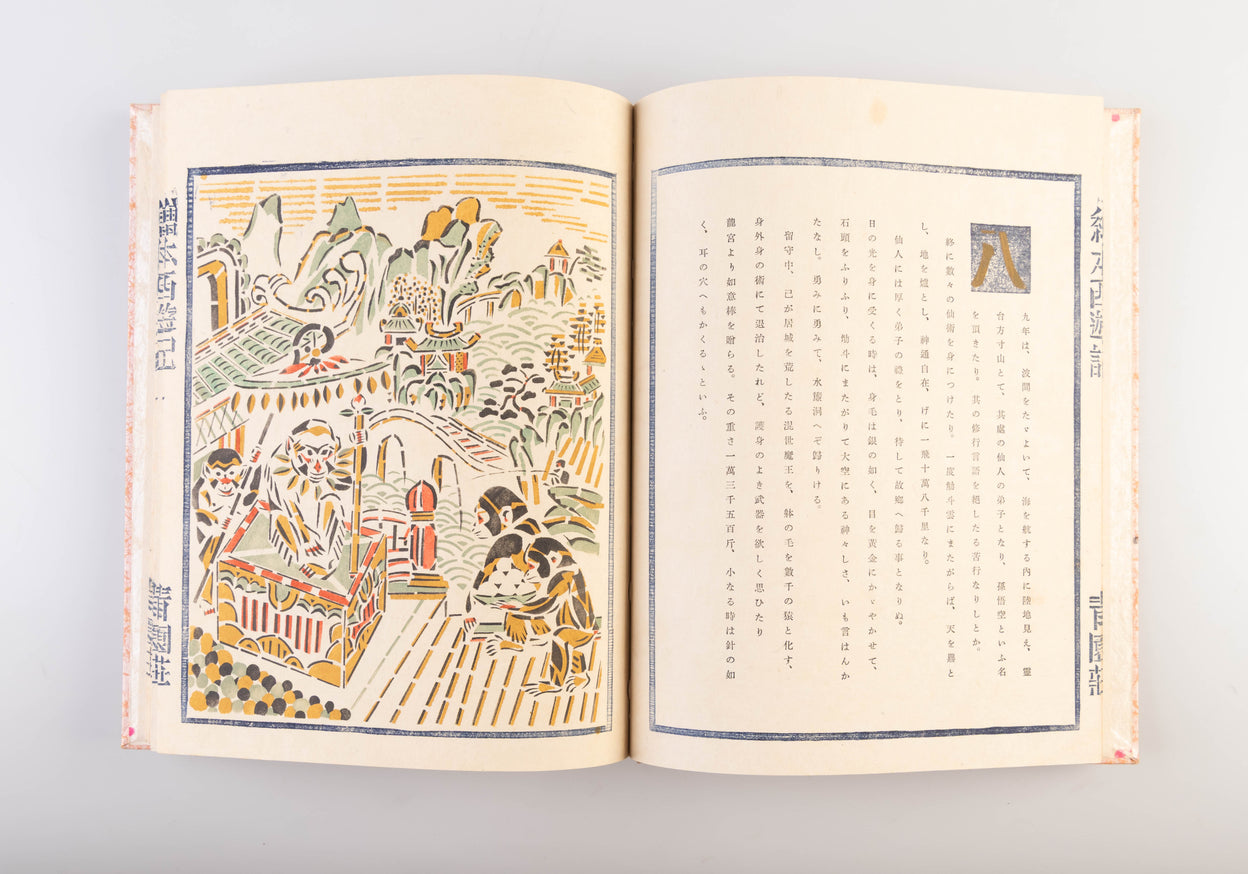 八
九年は、波間をたゞよいて、海を航する内に陸地見え、靈
台方寸山とて、其處の仙人の弟子となり、孫悟空といふ名
を頂きたり。其の修行言語を絕したる苦行なりしとか。
終に數々の仙術を身につけたり。一度觔斗雲にまたがらば、天を翥と
し、地を爐とし、神通自在、げに一飛十萬八千里なり。
仙人には厚く弟子の禮をとり、待して故鄉へ歸る事となりぬ。
日の光を身に受くる時は、身毛は銀の如く、目を黃金にかゞやかせて、
石頭をふりふり、觔斗にまたがりて大空にある神々しさ、いも言はんか
たなし。勇みに勇みて、水簾洞へぞ歸りける。
留守中、己が居城を荒したる混世魔王を、躰の毛を數千の猿と化す、
身外身の術にて退治したれど、護身のよき武器を欲しく思ひたり
龍宮より如意棒を贈らる。その重さ一萬三千五百斤、小なる時は針の如
く、耳の穴へもかくるゝといふ。
繪本西遊記